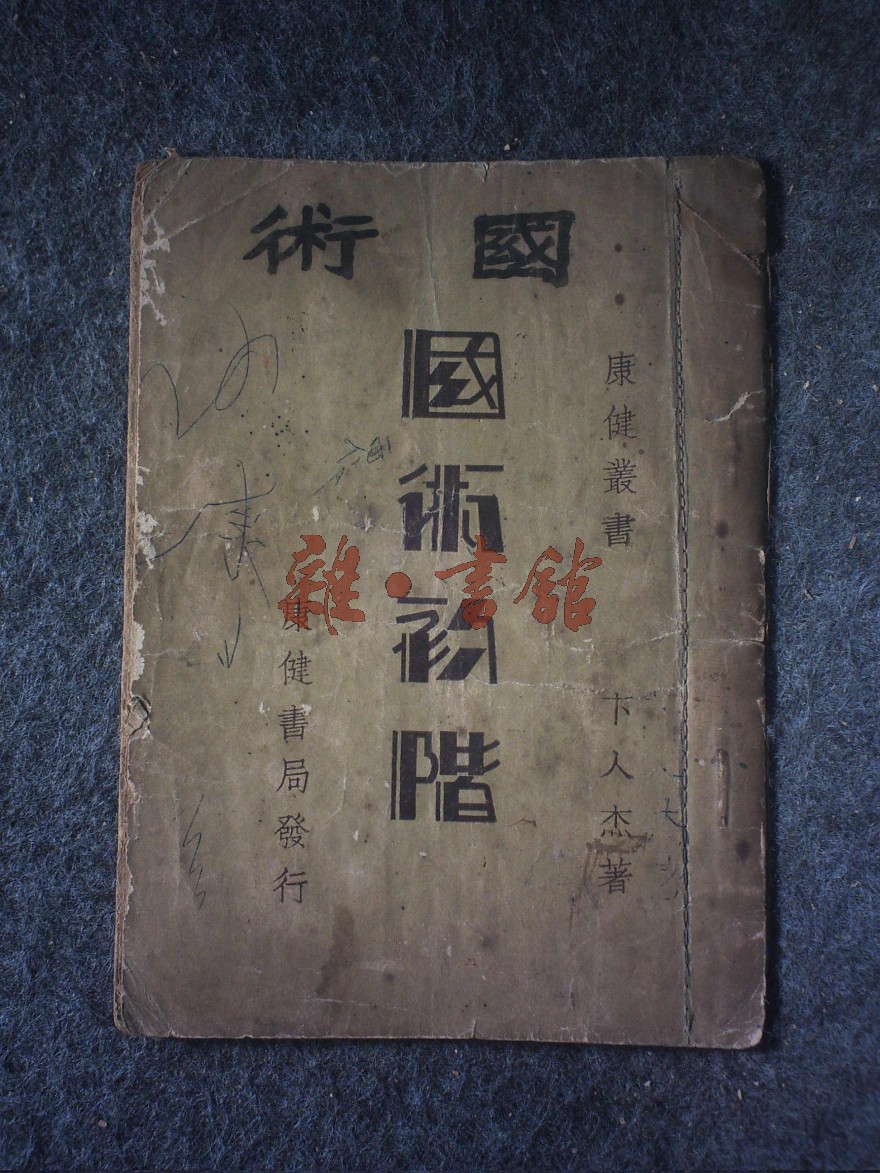 國術
康健叢書 卞人杰著
國術初階
康健書局發行
雜·書館